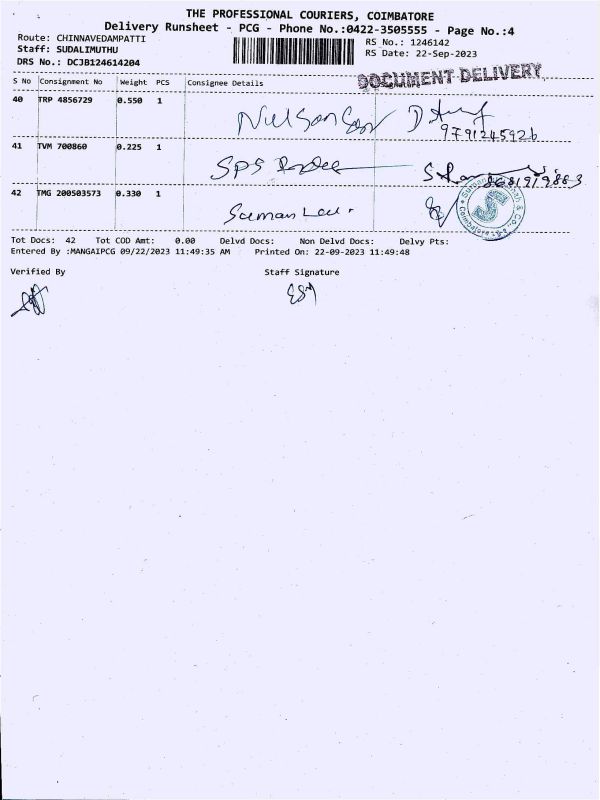 THE PROFESSIONAL COURIERS, COIMBATORE
Delivery Runsheet - PCG - Phone No.:0422-3505555 - Page No.:4
Route: CHINNAVEDAMPATTI
RS No.: 1246142
Staff: SUDALIMUTHU
RS Date: 22-Sep-2023
DRS No.: DCJB124614204
DOCUMENT DELIVERY
S No Consignment No Weight PCS Consignee Details
40 TRP 4856729 0.550 1
9791245926
41 TVM 700860 0.225 1 SPS
42 TMG 200503573 0.330 1 Suman
& Co.
Coimbatore
Tot Docs: 42 Tot COD Amt: 0.00 Delvd Docs: Non Delvd Docs: Delvy Pts:
Entered By :MANGAIPCG 09/22/2023 11:49:35 AM Printed On: 22-09-2023 11:49:48
Verified By Staff Signature